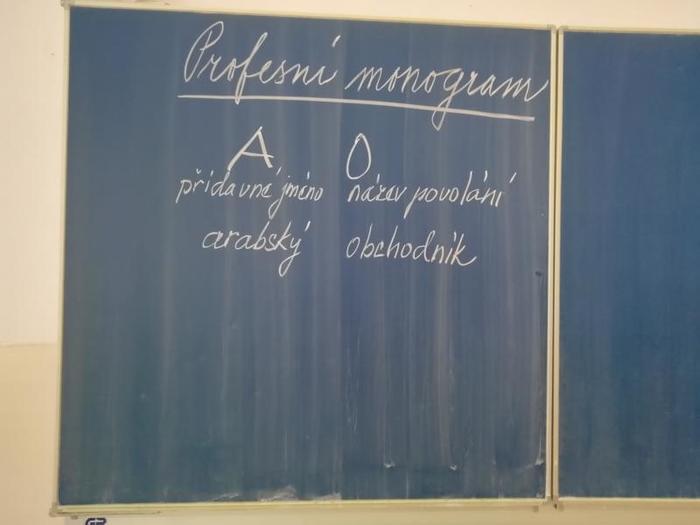 Profesní monogram
A O
přídavné jméno název povolání
arabský obchodník